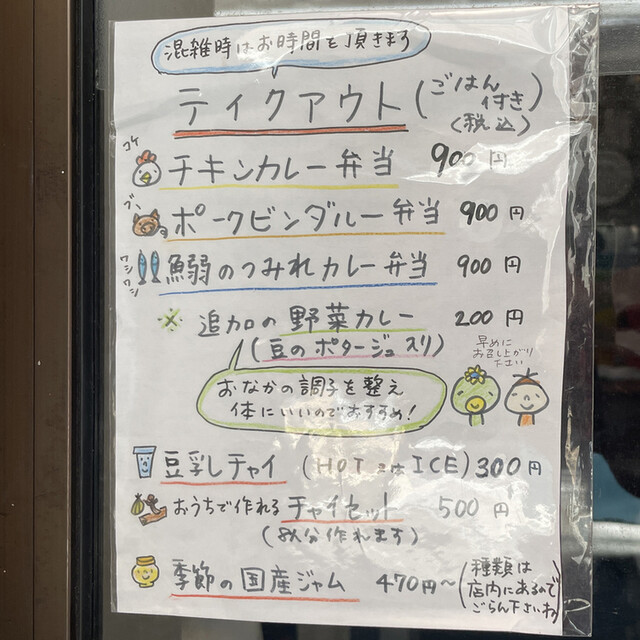 混雑時はお時間を頂きます
テイクアウト(ごはん付き)(税込)
コケ
チキンカレー弁当 900円
ブー
ポークビンダルー弁当 900円
ワシワシ
鰯のつみれカレー弁当 900円
※ 追加の野菜カレー 200円
(豆のポタージュ入り)
早めに
お召し上がり
下さい
おなかの調子を整え
体にいいのでおすすめ!
豆乳チャイ (HOT または ICE) 300円
おうちで作れるチャイセット 500円
(8人分作れます)
季節の国産ジャム 470円〜(種類は
店内にあるので
ごらん下さいね)